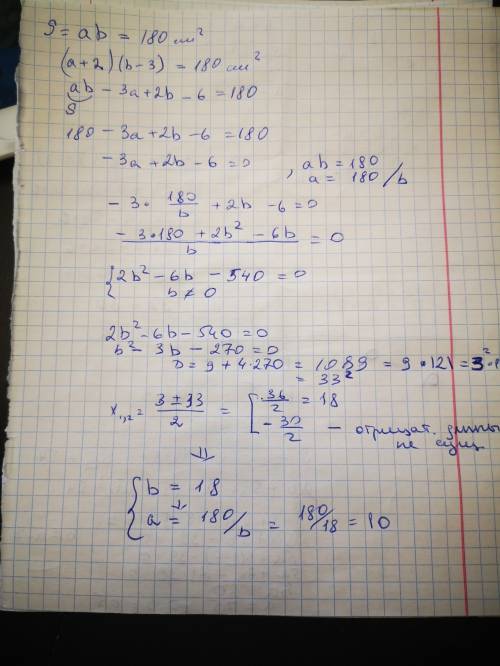 S = ab = 180 см²
(a+2)(b-3) = 180 см²
ab - 3a + 2b - 6 = 180
S
180 - 3a + 2b - 6 = 180
- 3a + 2b - 6 = 0 , ab = 180
a = 180/b
- 3 · 180/b + 2b - 6 = 0
(- 3·180 + 2b² - 6b)/b = 0
{ 2b² - 6b - 540 = 0
b ≠ 0
2b² - 6b - 540 = 0
b² - 3b - 270 = 0
D = 9 + 4·270 = 1089 = 9 · 121 = 3² ·
= 33²
x₁,₂ = (3 ± 33)/2 = [ 36/2 = 18
- 30/2 - отрицат. длины
не сущ
⇓
{ b = 18
a = 180/b = 180/18 = 10